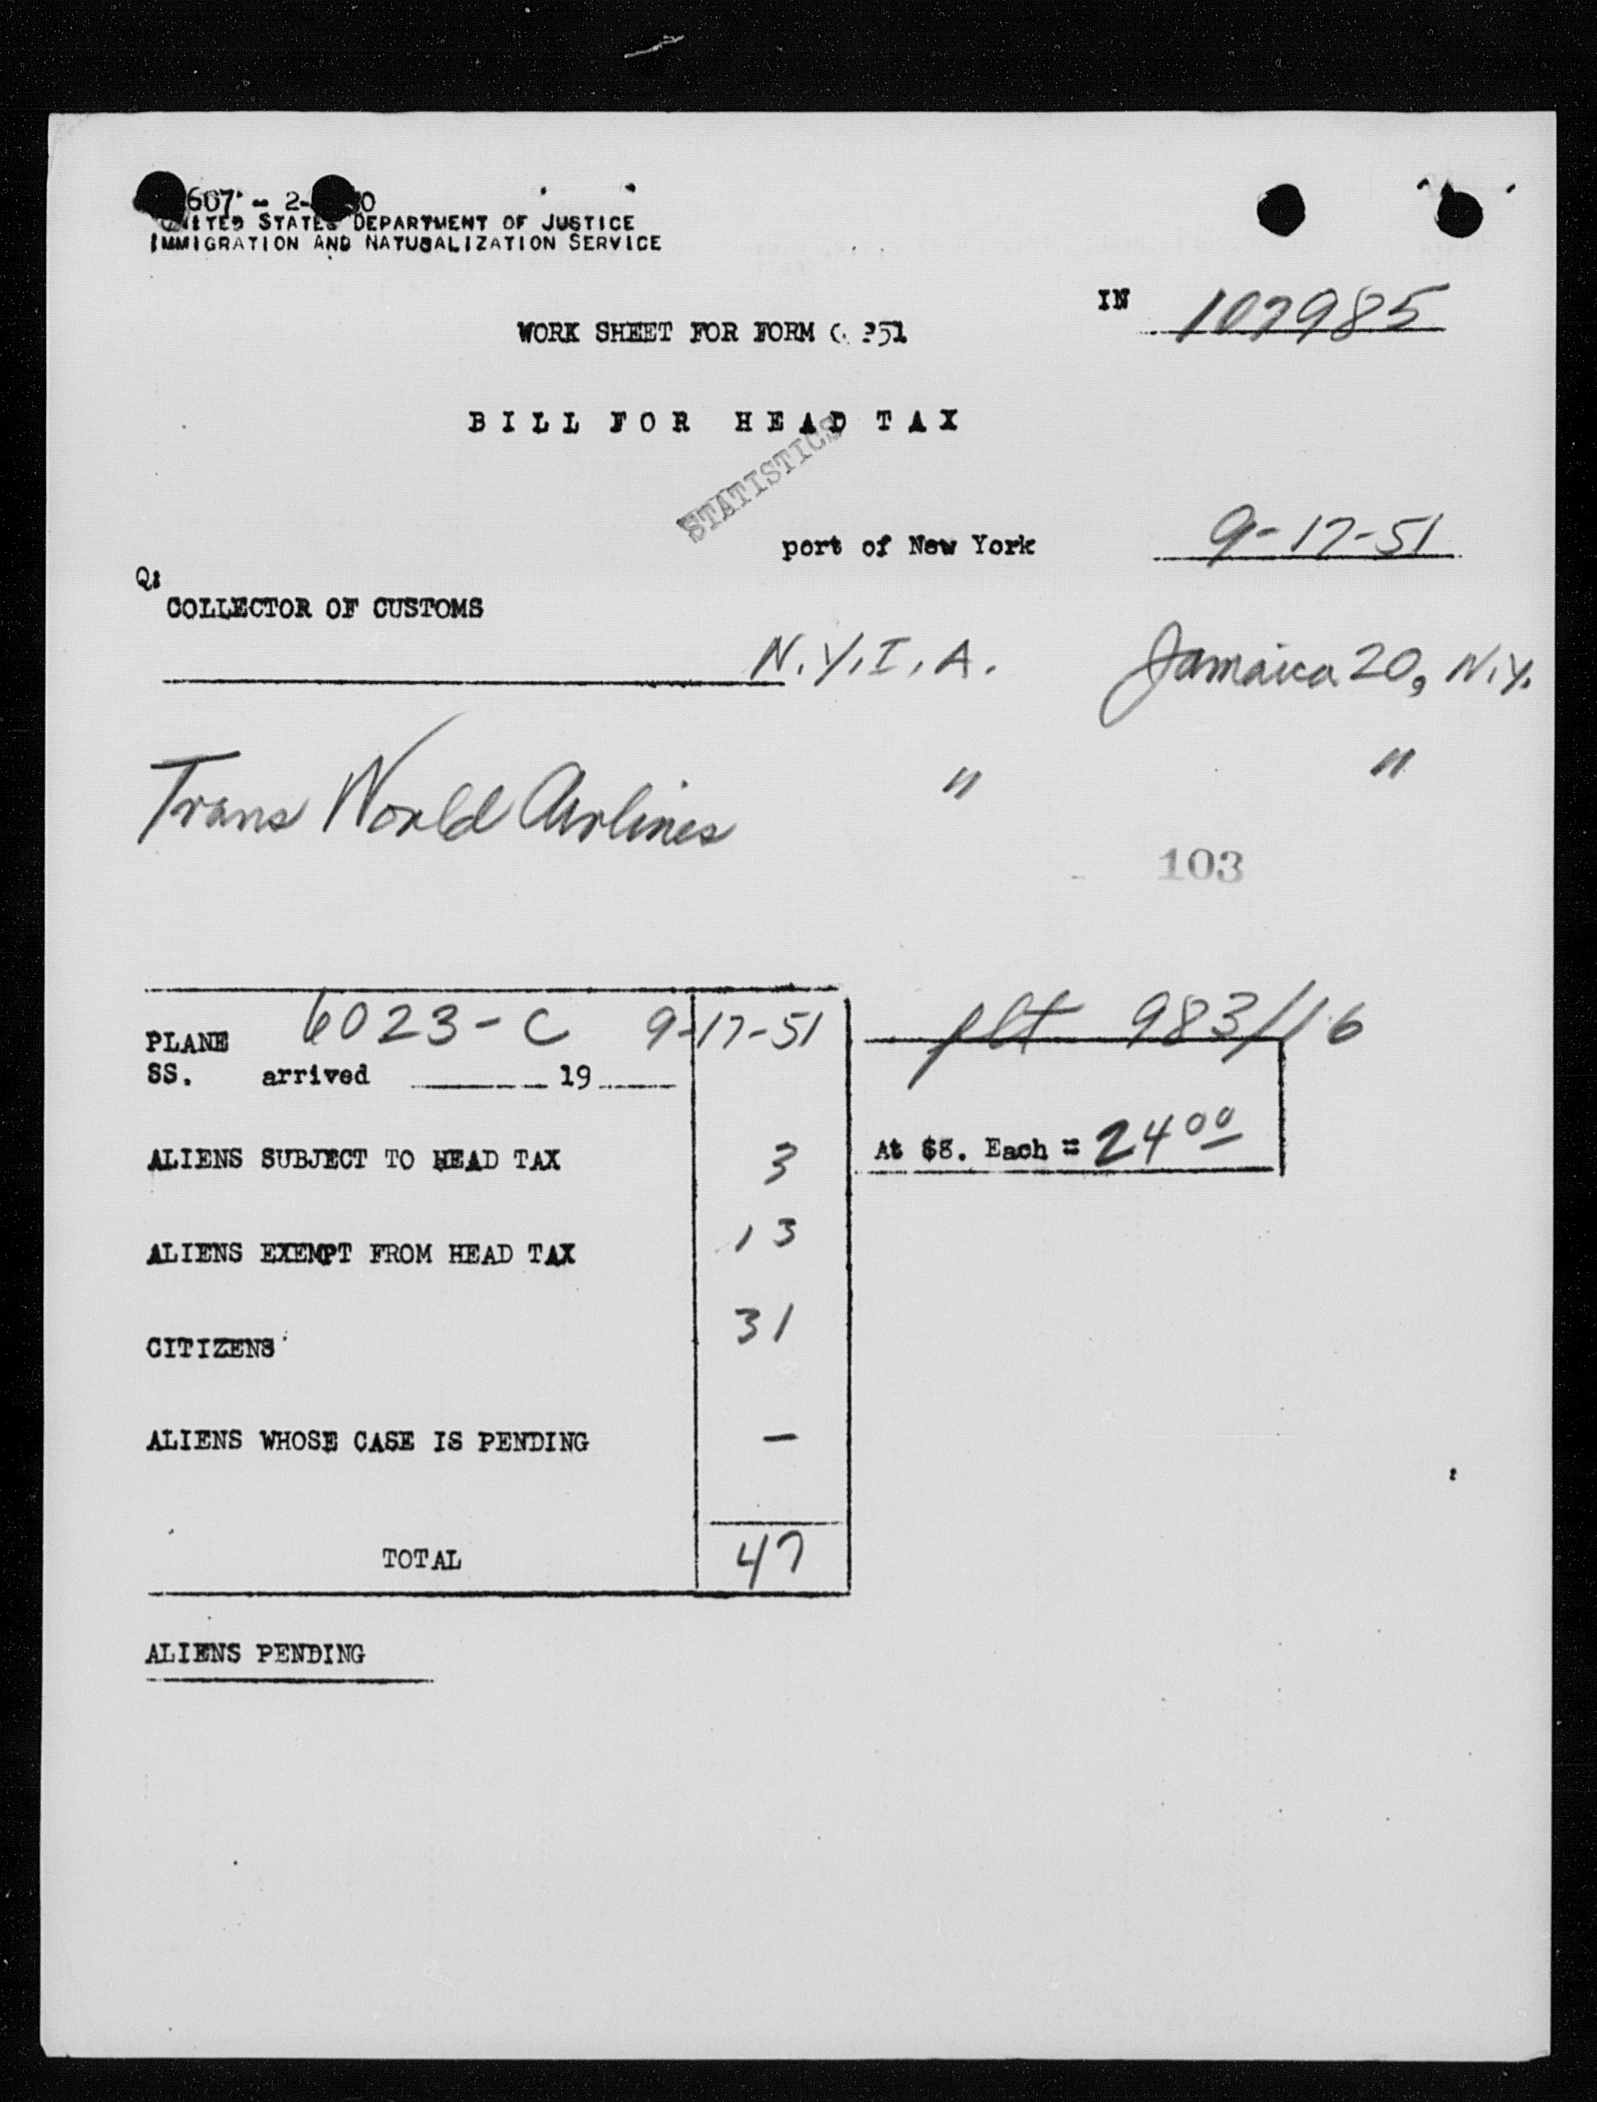 607 - 2-
UNITED STATES DEPARTMENT OF JUSTICE
IMMIGRATION AND NATURALIZATION SERVICE
IN 107985
WORK SHEET FOR FORM 351
BILL FOR HEAD TAX
STATISTICS
port of New York 9-17-51
COLLECTOR OF CUSTOMS
N.Y.I.A. Jamaica 20, N.Y.
Trans World Airlines " "
103
PLANE 6023-C 9-17-51 flt 983/16
SS. arrived 19
ALIENS SUBJECT TO HEAD TAX 3 At $8. Each = 24 00
ALIENS EXEMPT FROM HEAD TAX 13
CITIZENS 31
ALIENS WHOSE CASE IS PENDING —
TOTAL 47
ALIENS PENDING